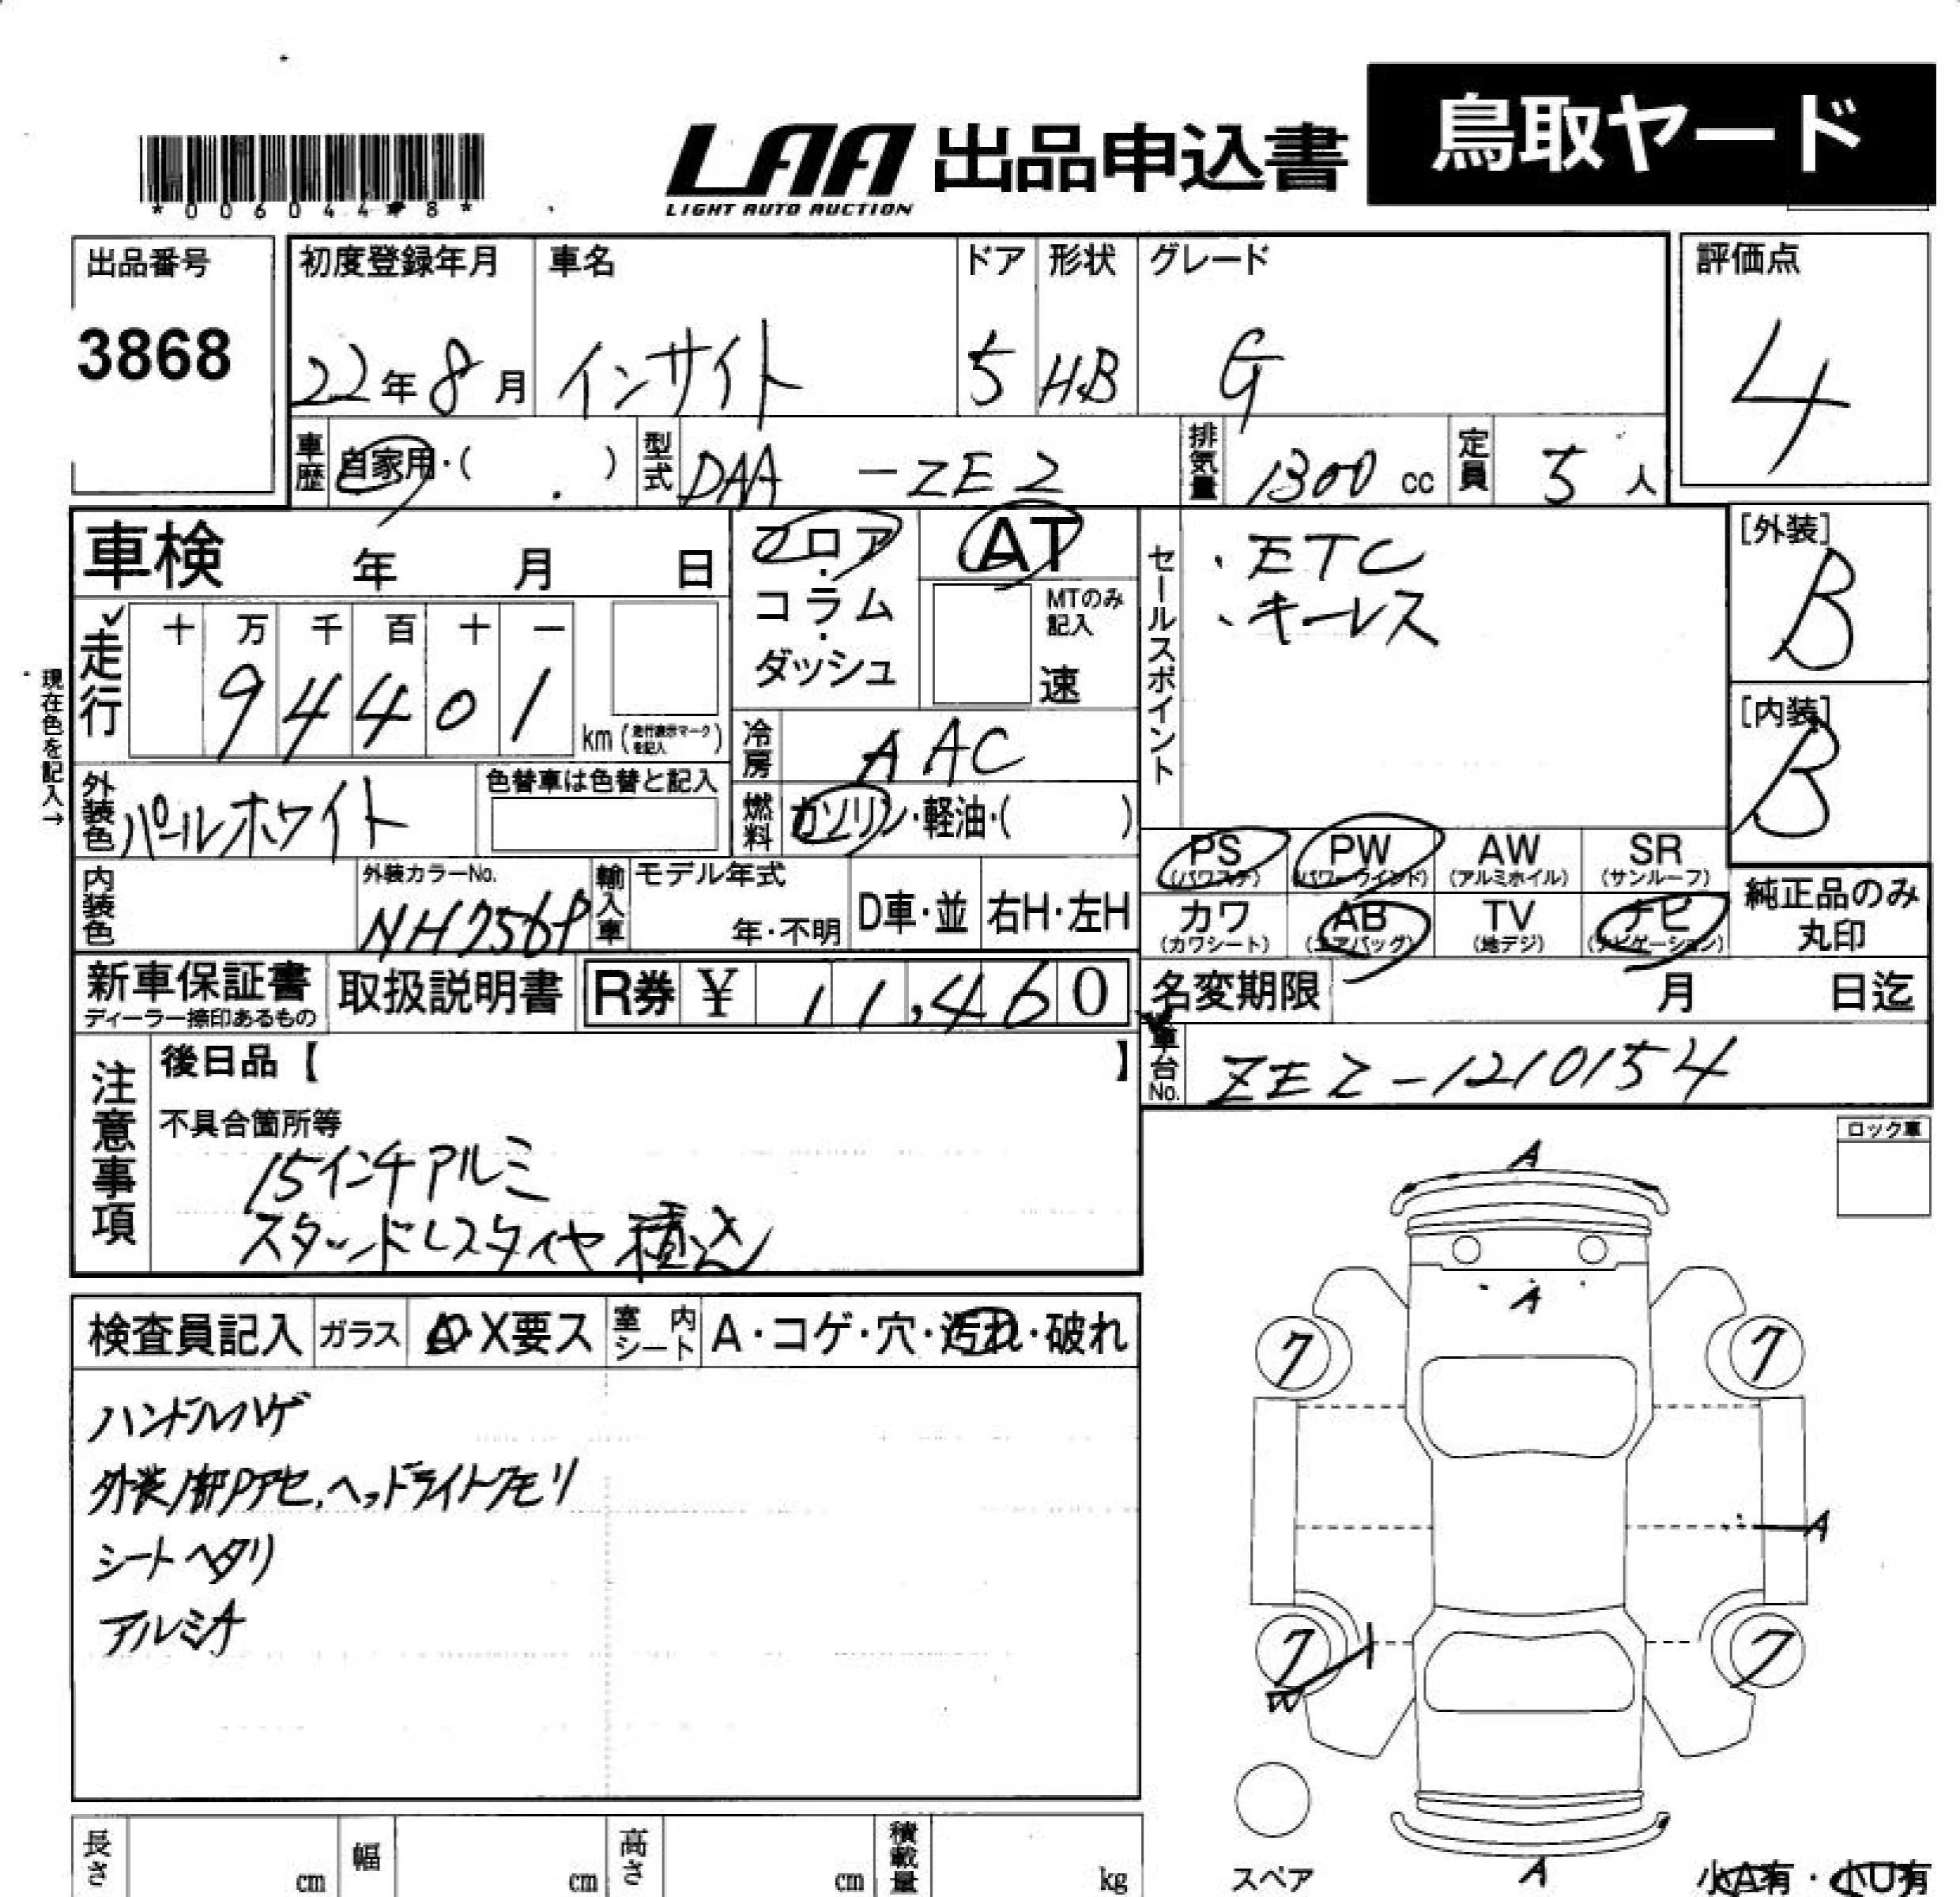 鳥取ヤード
LAA 出品申込書
LIGHT AUTO AUCTION
出品番号
3868
初度登録年月
22年8月
車名
インサイト
ドア
5
形状
HB
グレード
G
評価点
4
車歴 自家用・( )
型式 DAA -ZE2
排気量 1300 cc
定員 5人
車検 年 月 日
フロア・コラム・ダッシュ
AT
MTのみ記入
速
セールスポイント
・ETC
、キーレス
[外装]
B
[内装]
B
現在色を記入→
走行
十 万 千 百 十 一
9 4 4 0 1
km (走行表示マークを記入)
冷房 AAC
外装色 パールホワイト
色替車は色替と記入
燃料 ガソリン・軽油・( )
PS (パワステ)
PW (パワーウインド)
AW (アルミホイル)
SR (サンルーフ)
カワ (カワシート)
AB (エアバッグ)
TV (地デジ)
ナビ (ナビゲーション)
純正品のみ丸印
内装色
外装カラーNo.
NH756P
輸入車
モデル年式
年・不明
D車・並
右H・左H
新車保証書
ディーラー捺印あるもの
取扱説明書
R券 ¥ 11,460
名変期限 月 日迄
車台No. ZE2-1210154
注意事項
後日品【 】
不具合箇所等
15インチアルミ
スタッドレスタイヤ積込
ロック車
検査員記入
ガラス A・X要ス
室内シート A・コゲ・穴・汚れ・破れ
ハンドルハゲ
ヘッドライトクモリ
シートヘタリ
アルミA
A
A
7 7
A
7 7
W
A
スペア
小A有・小U有
長さ cm
幅 cm
高さ cm
積載量 kg